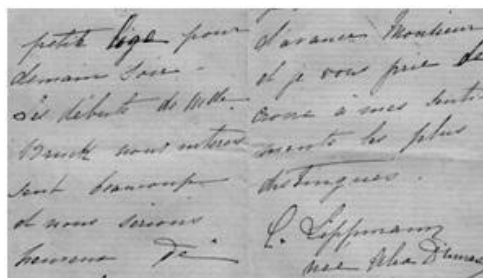 petite loge pour
demain soir.
Les débuts de Mlle.
Bruck nous interes
sent beaucoup
et nous serions
heureux
d'avance Monsieur
et je vous prie de
croire à mes senti
ments les plus
distingués.
C. Lippmann
née Alex Dumas